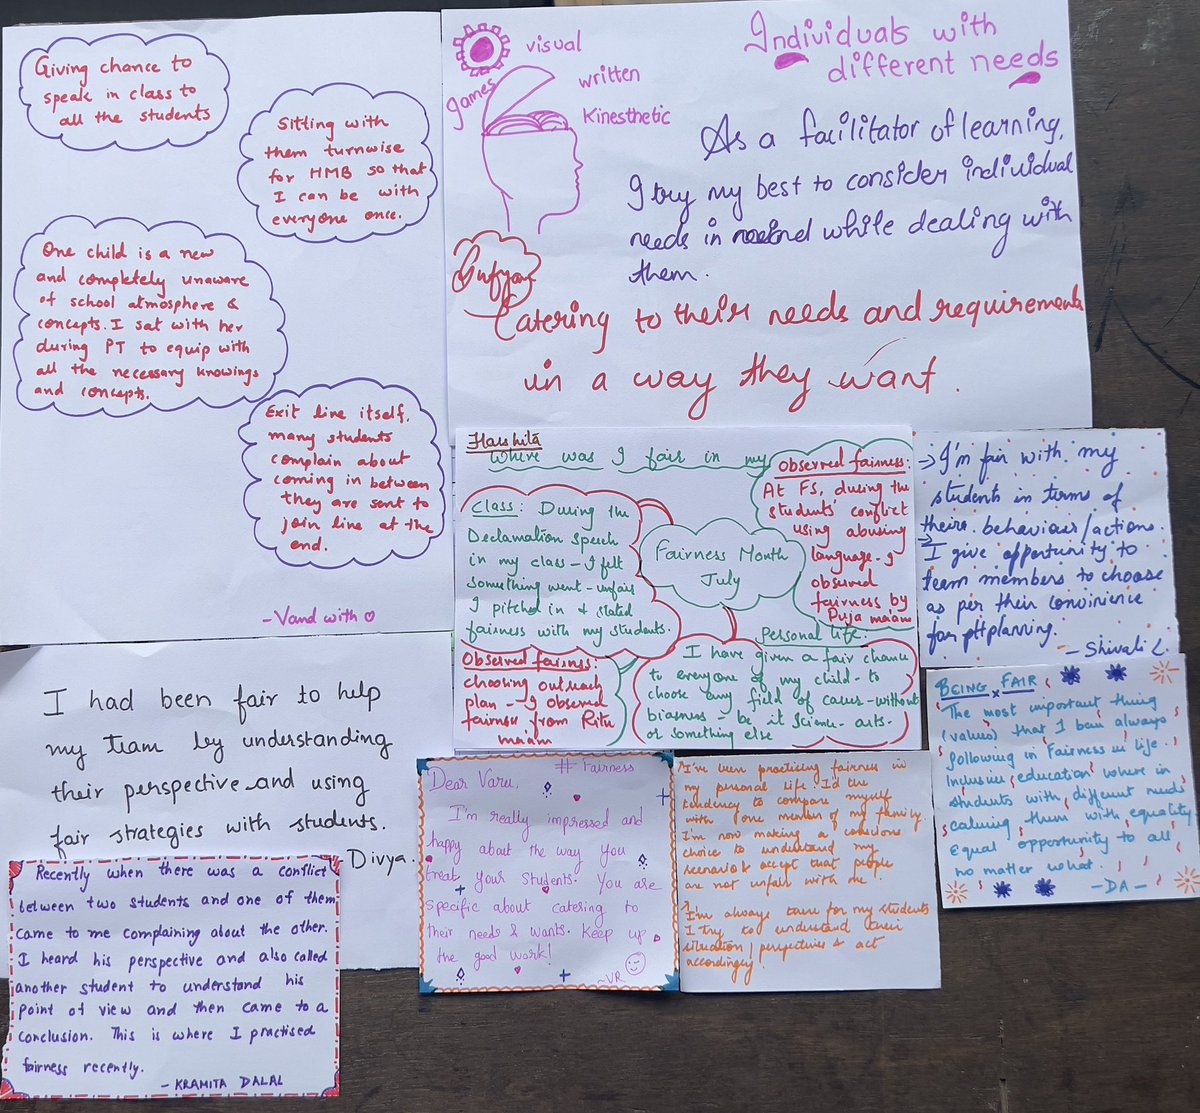 Giving chance to
speak in class to
all the students
Sitting with
them turnwise
for HMB so that
I can be with
everyone once.
One child is a new
and completely unaware
of school atmosphere &
concepts. I sat with her
during PT to equip with
all the necessary knowings
and concepts.
Exit line itself,
many students
complain about
coming in between
they are sent to
join line at the
end.
- Vand with
visual
games
written
Kinesthetic
Individuals with
different needs
As a facilitator of learning,
I try my best to consider individual
needs in mind while dealing with
them.
Catering to their needs and requirements
in a way they want.
Harshita
Where was I fair in my
Class: During the
Declamation speech
in my class - I felt
something went - unfair
I pitched in & stated
fairness with my students.
Fairness Month
July
Observed fairness:
At FS, during the
students' conflict
using abusing
language - I
observed
fairness by
Puja maam
Observed fairness:
choosing outreach
plan - I observed
fairness from Ritu
maam
Personal life:
I have given a fair chance
to everyone of my child - to
choose any field of career - without
biasness - be it science - arts -
or something else
→ I'm fair with my
students in terms of
theirs behaviour/actions.
→ I give oppertunity to
team members to choose
as per their convinience
for pH planning.
- Shivali L.
BEING FAIR
The most important thing
(values) that I have always
following in Fairness in life.
Inclusive education where in
students with different needs
calming them with equality
Equal opportunity to all
no matter what.
- DA -
I had been fair to help
my team by understanding
their perspective and using
fair strategies with students.
Divya.
Recently when there was a conflict
between two students and one of them
came to me complaining about the other.
I heard his perspective and also called
another student to understand his
point of view and then came to a
conclusion. This is where I practised
fairness recently.
- KRAMITA DALAL
# Fairness
Dear Varu,
I'm really impressed and
happy about the way you
treat your students. You are
specific about catering to
their needs & wants. Keep up
the good work!
~VR
I've been practicing fairness in
my personal life. I'd the
tendency to compare myself
with one member of my family.
I'm now making a conscious
choice to understand my
scenario & accept that people
are not unfair with me.
I'm always there for my students
I try to understand their
situation/perspectives & act
accordingly.